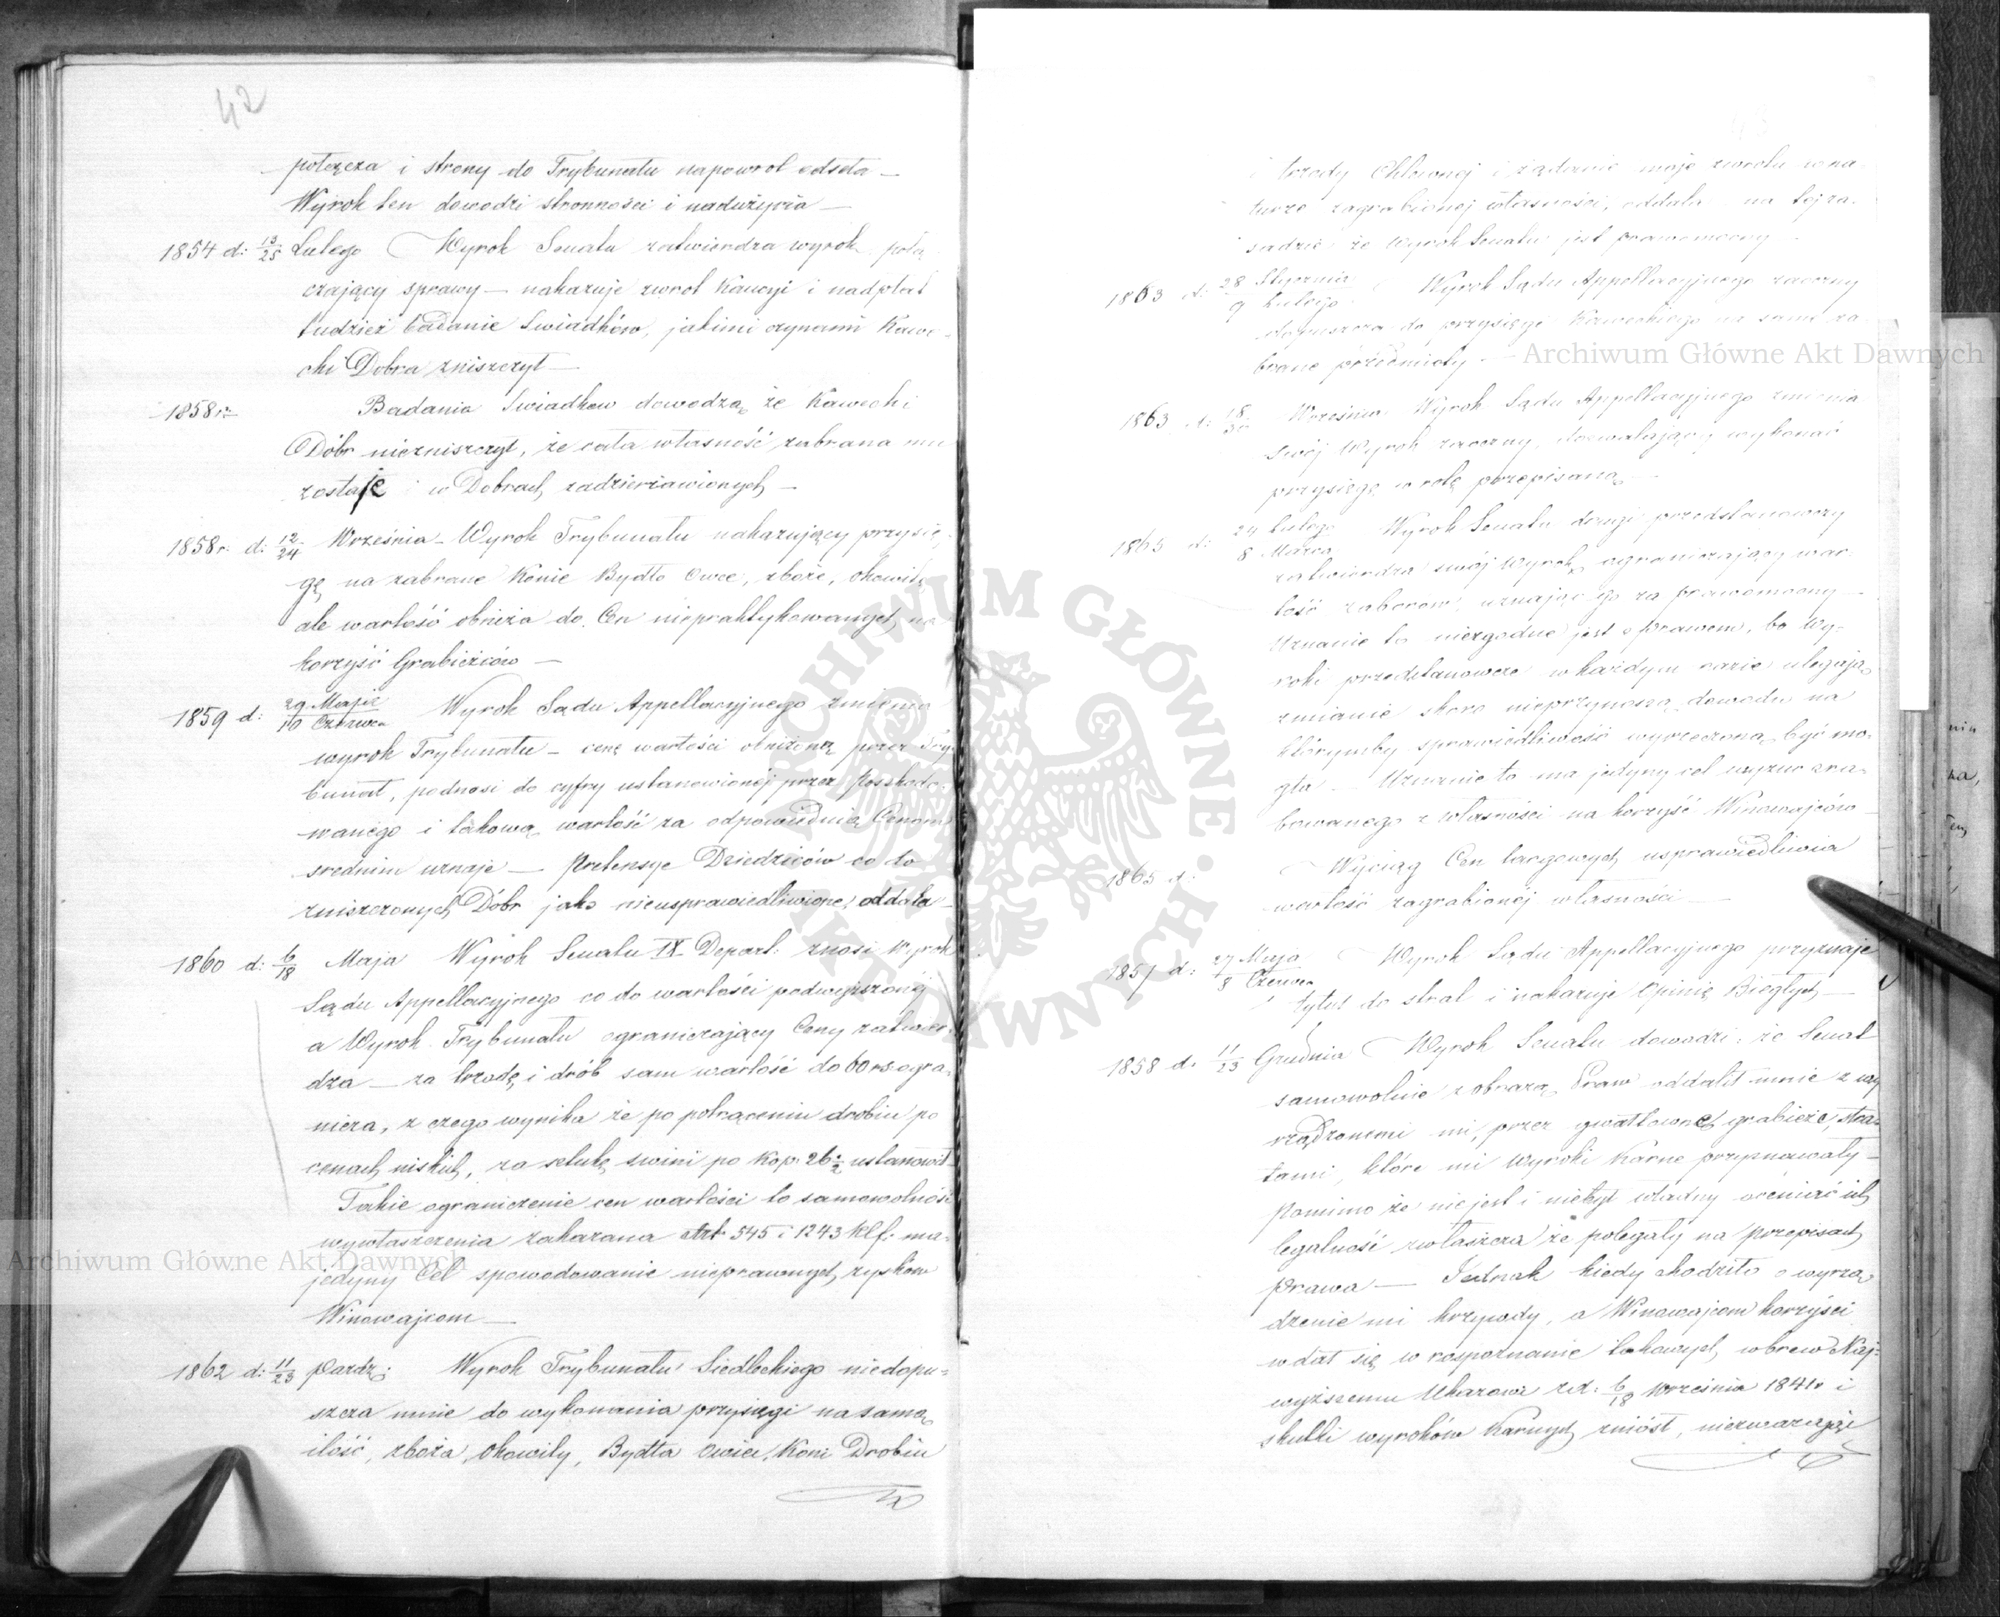 42
połącza i strony do Trybunału napowrót odseła —
Wyrok ten dowodzi stronności i nadużycia —
1854 d: 13/25 Lutego Wyrok Senatu zatwierdza wyrok połą
czający sprawy — nakazuje zwrot Kaucyi i nadpłat
tudzież badanie Swiadków, jakimi czynami Kawe-
cki Dobra zniszczył —
1858 r. Badania Swiadkow dowodzą że Kawecki
Dóbr niezniszczył, że cała własność zabrana mu
zostaje w Dobrach zadzierżawionych —
1858 r. d: 12/24 Września — Wyrok Trybunału nakazujący przysię
gę na zabrane Konie Bydło Owce, zboże, okowitę
ale wartość obniża do Cen niepraktykowanych na
korzyść Grabieżców —
1859 d: 29 Maja/10 Czerwca Wyrok Sądu Appellacyjnego zmienia
wyrok Trybunału — cenę wartości obniżoną przez Try-
bunał, podnosi do cyfry ustanowionej przez Poszkodo-
wanego i takową wartość za odpowiednią Cenom
srednim uznaje — Pretensye Dziedziców co do
zniszczonych Dóbr jako nieusprawiedliwione, oddala —
1860 d: 6/18 Maja Wyrok Senatu IX Depart: znosi Wyrok
Sądu Appellacyjnego co do wartości podwyższonéj
a Wyrok Trybunału ograniczający Ceny zatwier-
dza — za trzodę i drób sam wartość do 60 rs ogra-
nicza, z czego wynika że po potrąceniu drobiu po
cenach niskich, za sztukę swini po Kop. 26 1/2 ustanowił —
Takie ograniczenie cen wartości to samowolność
wywłaszczenia zakazana Art: 545 i 1243 Klf: ma-
jedyny Cel spowodowanie nieprawnych zysków
Winowajcom —
1862 d: 11/23 Pazdz: Wyrok Trybunału Siedleckiego niedopu-
szcza mnie do wykonania przysięgi na samą
ilość, zboża, Okowity, Bydła Owiec, Koni Drobiu
i trzody Chlewnej i żądanie moje zwrotu w na-
turze zagrabionej własności, oddala na tej za-
sadzie że Wyrok Senatu jest prawomocny —
1863 d: 28 Stycznia/9 Lutego Wyrok Sądu Appellacyjnego zaoczny
dopuszcza do przysięgi Kaweckiego na same za
brane przedmioty —
1863 d: 18/30 Września Wyrok Sądu Appellacyjnego zmienia
swój Wyrok zaoczny, dozwalający wykonać
przysięgę w rotę przepisaną —
1865 d: 24 Lutego/8 Marca Wyrok Senatu drugi przedstanowczy
zatwierdza swój Wyrok, ograniczający war-
tość zaborów, uznając go za prawomocny —
Uznanie to niezgodne jest z prawem, bo Wy-
roki przedstanowcze w każdym razie ulegają
zmianie skoro nieprzynoszą dowodu na
którymby sprawiedliwość wyrzeczoną być mo-
gła — Uznanie to ma jedyny cel wyzuć zra-
bowanego z własności na korzyść Winowajców —
1865 r. Wyciąg Cen targowych usprawiedliwia
wartość zagrabionéj własności —
1857 d: 27 Maja/8 Czerwca Wyrok Sądu Appellacyjnego przyznaje
tytuł do strat i nakazuje Opinię Biegłych —
1858 d: 11/23 Grudnia Wyrok Senatu dowodzi: że Senat
samowolnie z obrazą Praw oddalił mnie z wy
rządzonemi mi, przez gwałtowne grabieże, stra-
tami, które mi Wyroki Karne przyznawały —
pomimo że nie jest i niebył władny oceniać ich
legalność zwłaszcza że polegały na przepisach
prawa — Jednak kiedy chodziło o wyrzą-
dzenie mi krzywdy, a Winowajcom korzyści
wdał się w rozpoznanie takowych wbrew Naj-
wyższemu Ukazowi z d: 6/18 Września 1841 r i
skutki wyroków Karnych zniósł, niezważając
Archiwum Główne Akt Dawnych
Archiwum Główne Akt Dawnych
ARCHIWUM GŁÓWNE · AKT DAWNYCH ·